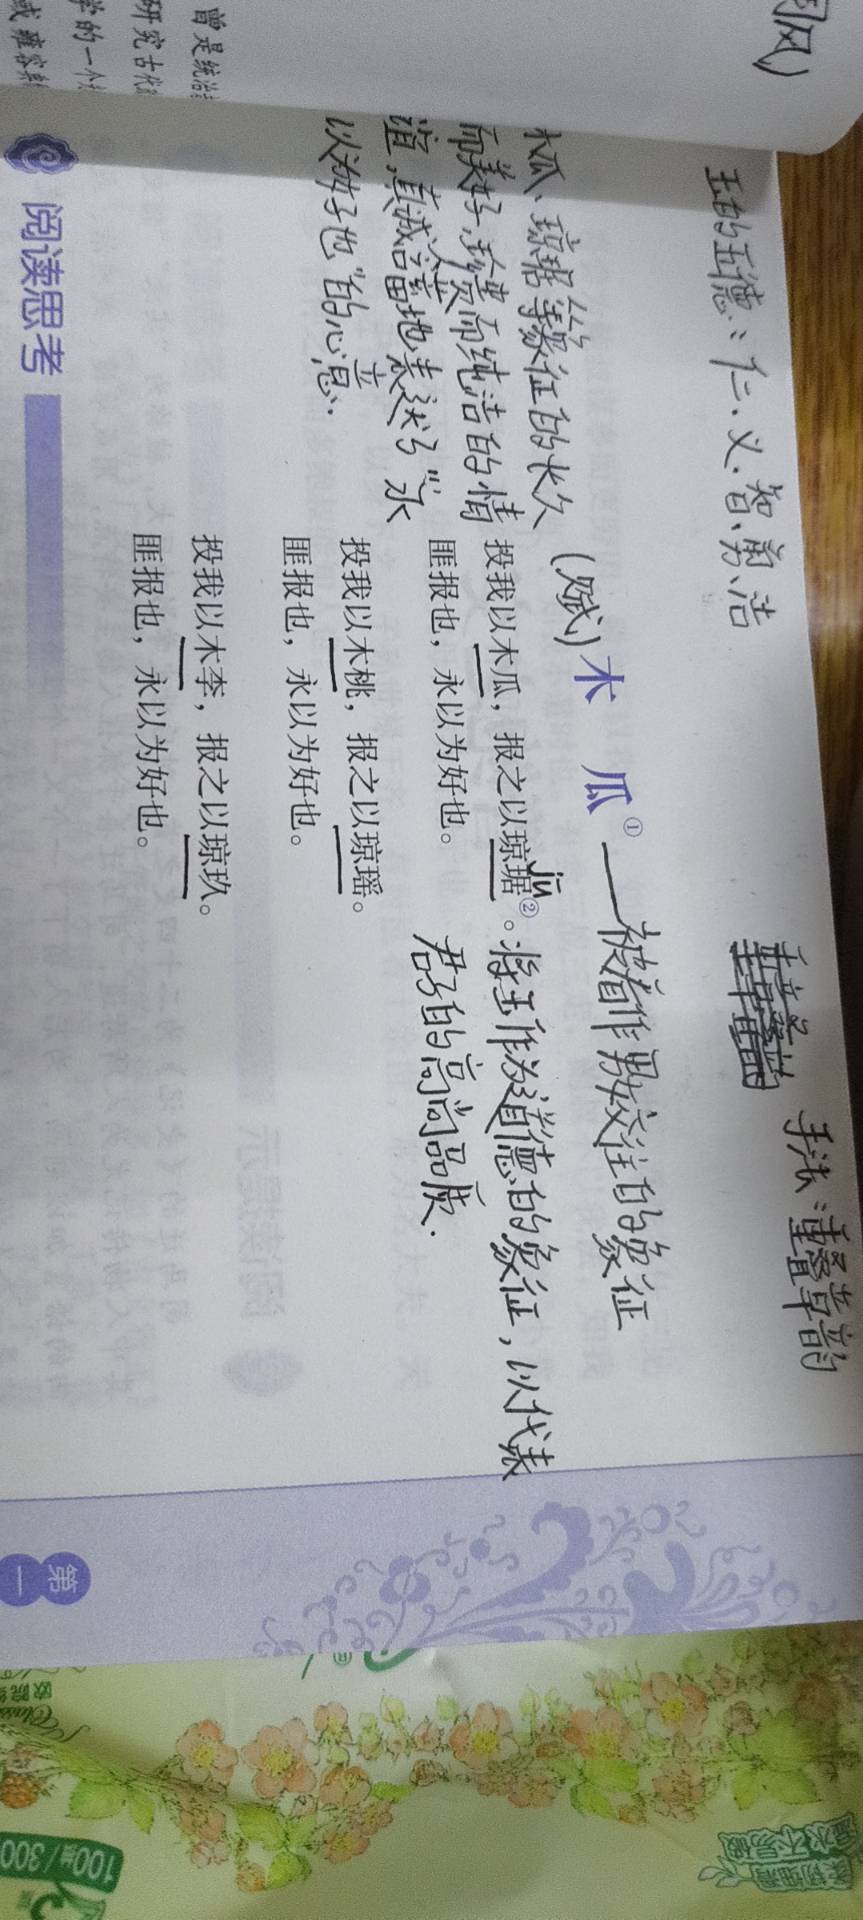 国风)
玉的五德：仁、义、智、勇、洁
手法：重章叠韵
(赋)木 瓜① ——被看作男女交往的象征
木瓜、琼琚等象征的长久
而美好、珍贵而纯洁的情
谊，真诚
地表达了“永
以为好也”的心意.
投我以木瓜，报之以琼琚②。
jū
匪报也，永以为好也。
投我以木桃，报之以琼瑶。
匪报也，永以为好也。
投我以木李，报之以琼玖。
匪报也，永以为好也。
将玉作为道德的象征，以代表
君子的高尚品质.
阅读思考
曾是统治
研究古代
学的一个
或雍容
第一
100抽/300